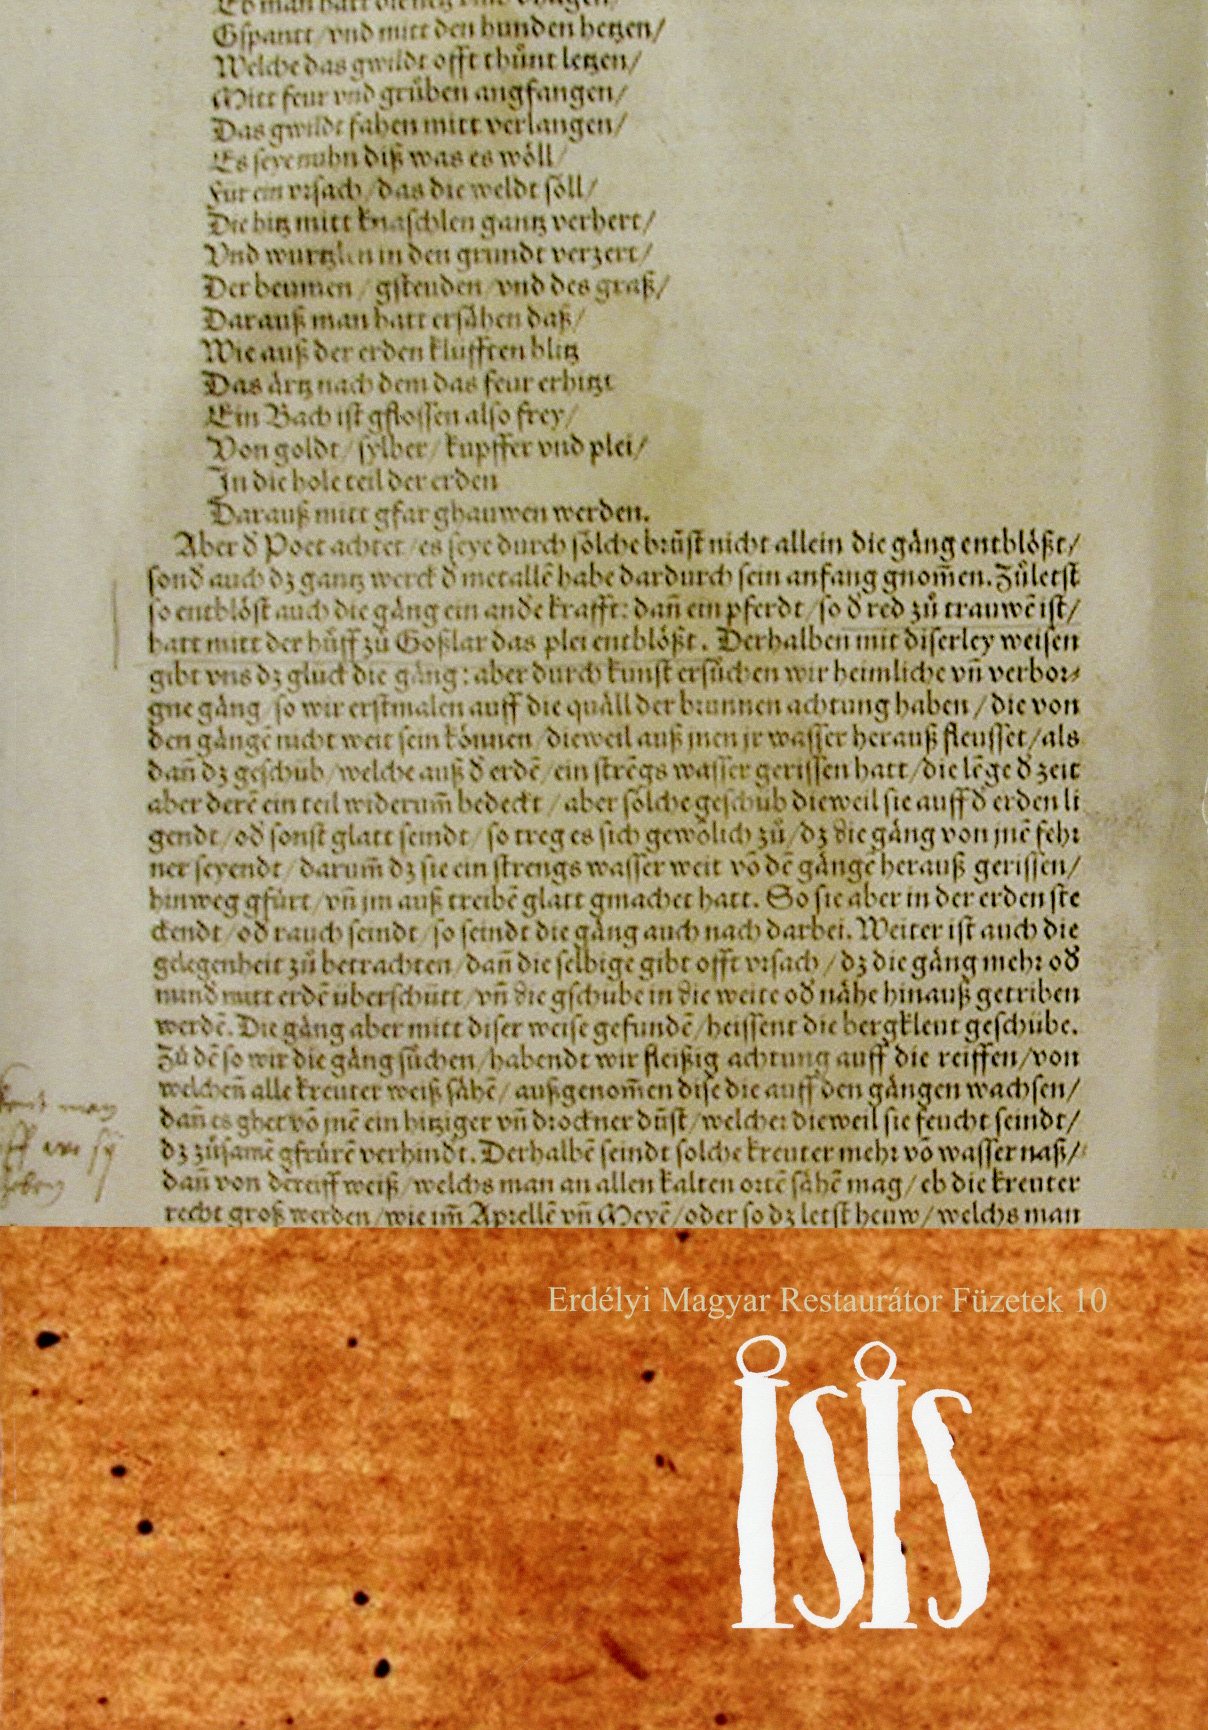 Gspannt/vnd mitt den hunden hetzen/
Welche das gwildt offt thůnt letzen/
Mitt feur vnd grůben angfangen/
Das gwildt fahen mitt verlangen/
Es seye nuhn diß was es wöll/
Für ein vrsach/das die weldt söll/
Die hitz mitt knaschlen gantz verhert/
Vnd wurtzlen in den grundt verzert/
Der beumen/gsteuden/vnd des graß/
Darauß man hatt ersåhen daß/
Wie auß der erden klufften blitz
Das årtz nach dem das feur erhitzt
Ein Bach ist gflossen also frey/
Von goldt/sylber/kupffer vnd plei/
In die hole teil der erden
Darauß mitt gfar ghauwen werden.
Aber ď Poet achtet/es seye durch sölche brůst nicht allein die gång entblößt/
sonď auch dz gantz werck ď metallē habe dardurch sein anfang gnom̄en. Zůletst
so entblöst auch die gång ein andē krafft: dan̄ ein pferdt/so ď red zů trauwē ist/
hatt mitt der hůff zů Goßlar das plei entblößt. Derhalben mit diserley weisen
gibt vns dz glück die gång: aber durch kunst ersůchen wir heimliche vn̄ verbor⸗
gne gång/so wir erstmalen auff die quåll der brunnen achtung haben/die von
den gångē nicht weit sein können/dieweil auß jnen jr wasser herauß fleusset/als
dan̄ dz geschüb/welche auß ď erdē/ein strēgs wasser gerissen hatt/die lēge ď zeit
aber derē ein teil widerum̄ bedeckt/aber sölche geschüb dieweil sie auff ď erden li
gendt/oď sonst glatt seindt/so treg es sich gewölich zů/dz die gång von jnē fehr
ner seyendt/darum̄ dz sie ein strengs wasser weit vō dē gångē herauß gerissen/
hinweg gfürt/vn̄ im auß treibē glatt gmachet hatt. So sie aber in der erden ste
ckendt/oď rauch seindt/so seindt die gång auch nach darbei. Weiter ist auch die
gelegenheit zů betrachten/dan̄ die selbige gibt offt vrsach/dz die gång mehr oď
mind mitt erdē überschütt/vn̄ die gschübe in die weite oď nåhe hinauß getriben
werdē. Die gång aber mitt diser weise gefundē/heissent die bergkleut geschübe.
Zů dē so wir die gång sůchen/habendt wir fleißig achtung auff die reiffen/von
welchen̄ alle kreuter weiß såhē/außgenom̄en dise die auff den gången wachsen/
dan̄ es ghet vō jnē ein hitziger vn̄ drockner dunst/welcher dieweil sie feucht seindt/
dz zůsamē gfrürē verhindt. Derhalbē seindt solche kreuter mehr vō wasser naß/
dan̄ von dē reiff weiß/welchs man an allen kalten ortē såhē mag/eb die kreuter
recht groß werden/wie im̄ Aprellē vn̄ Meyē/oder so dz letst heuw/welchs man
Erdélyi Magyar Restaurátor Füzetek 10
ISIS